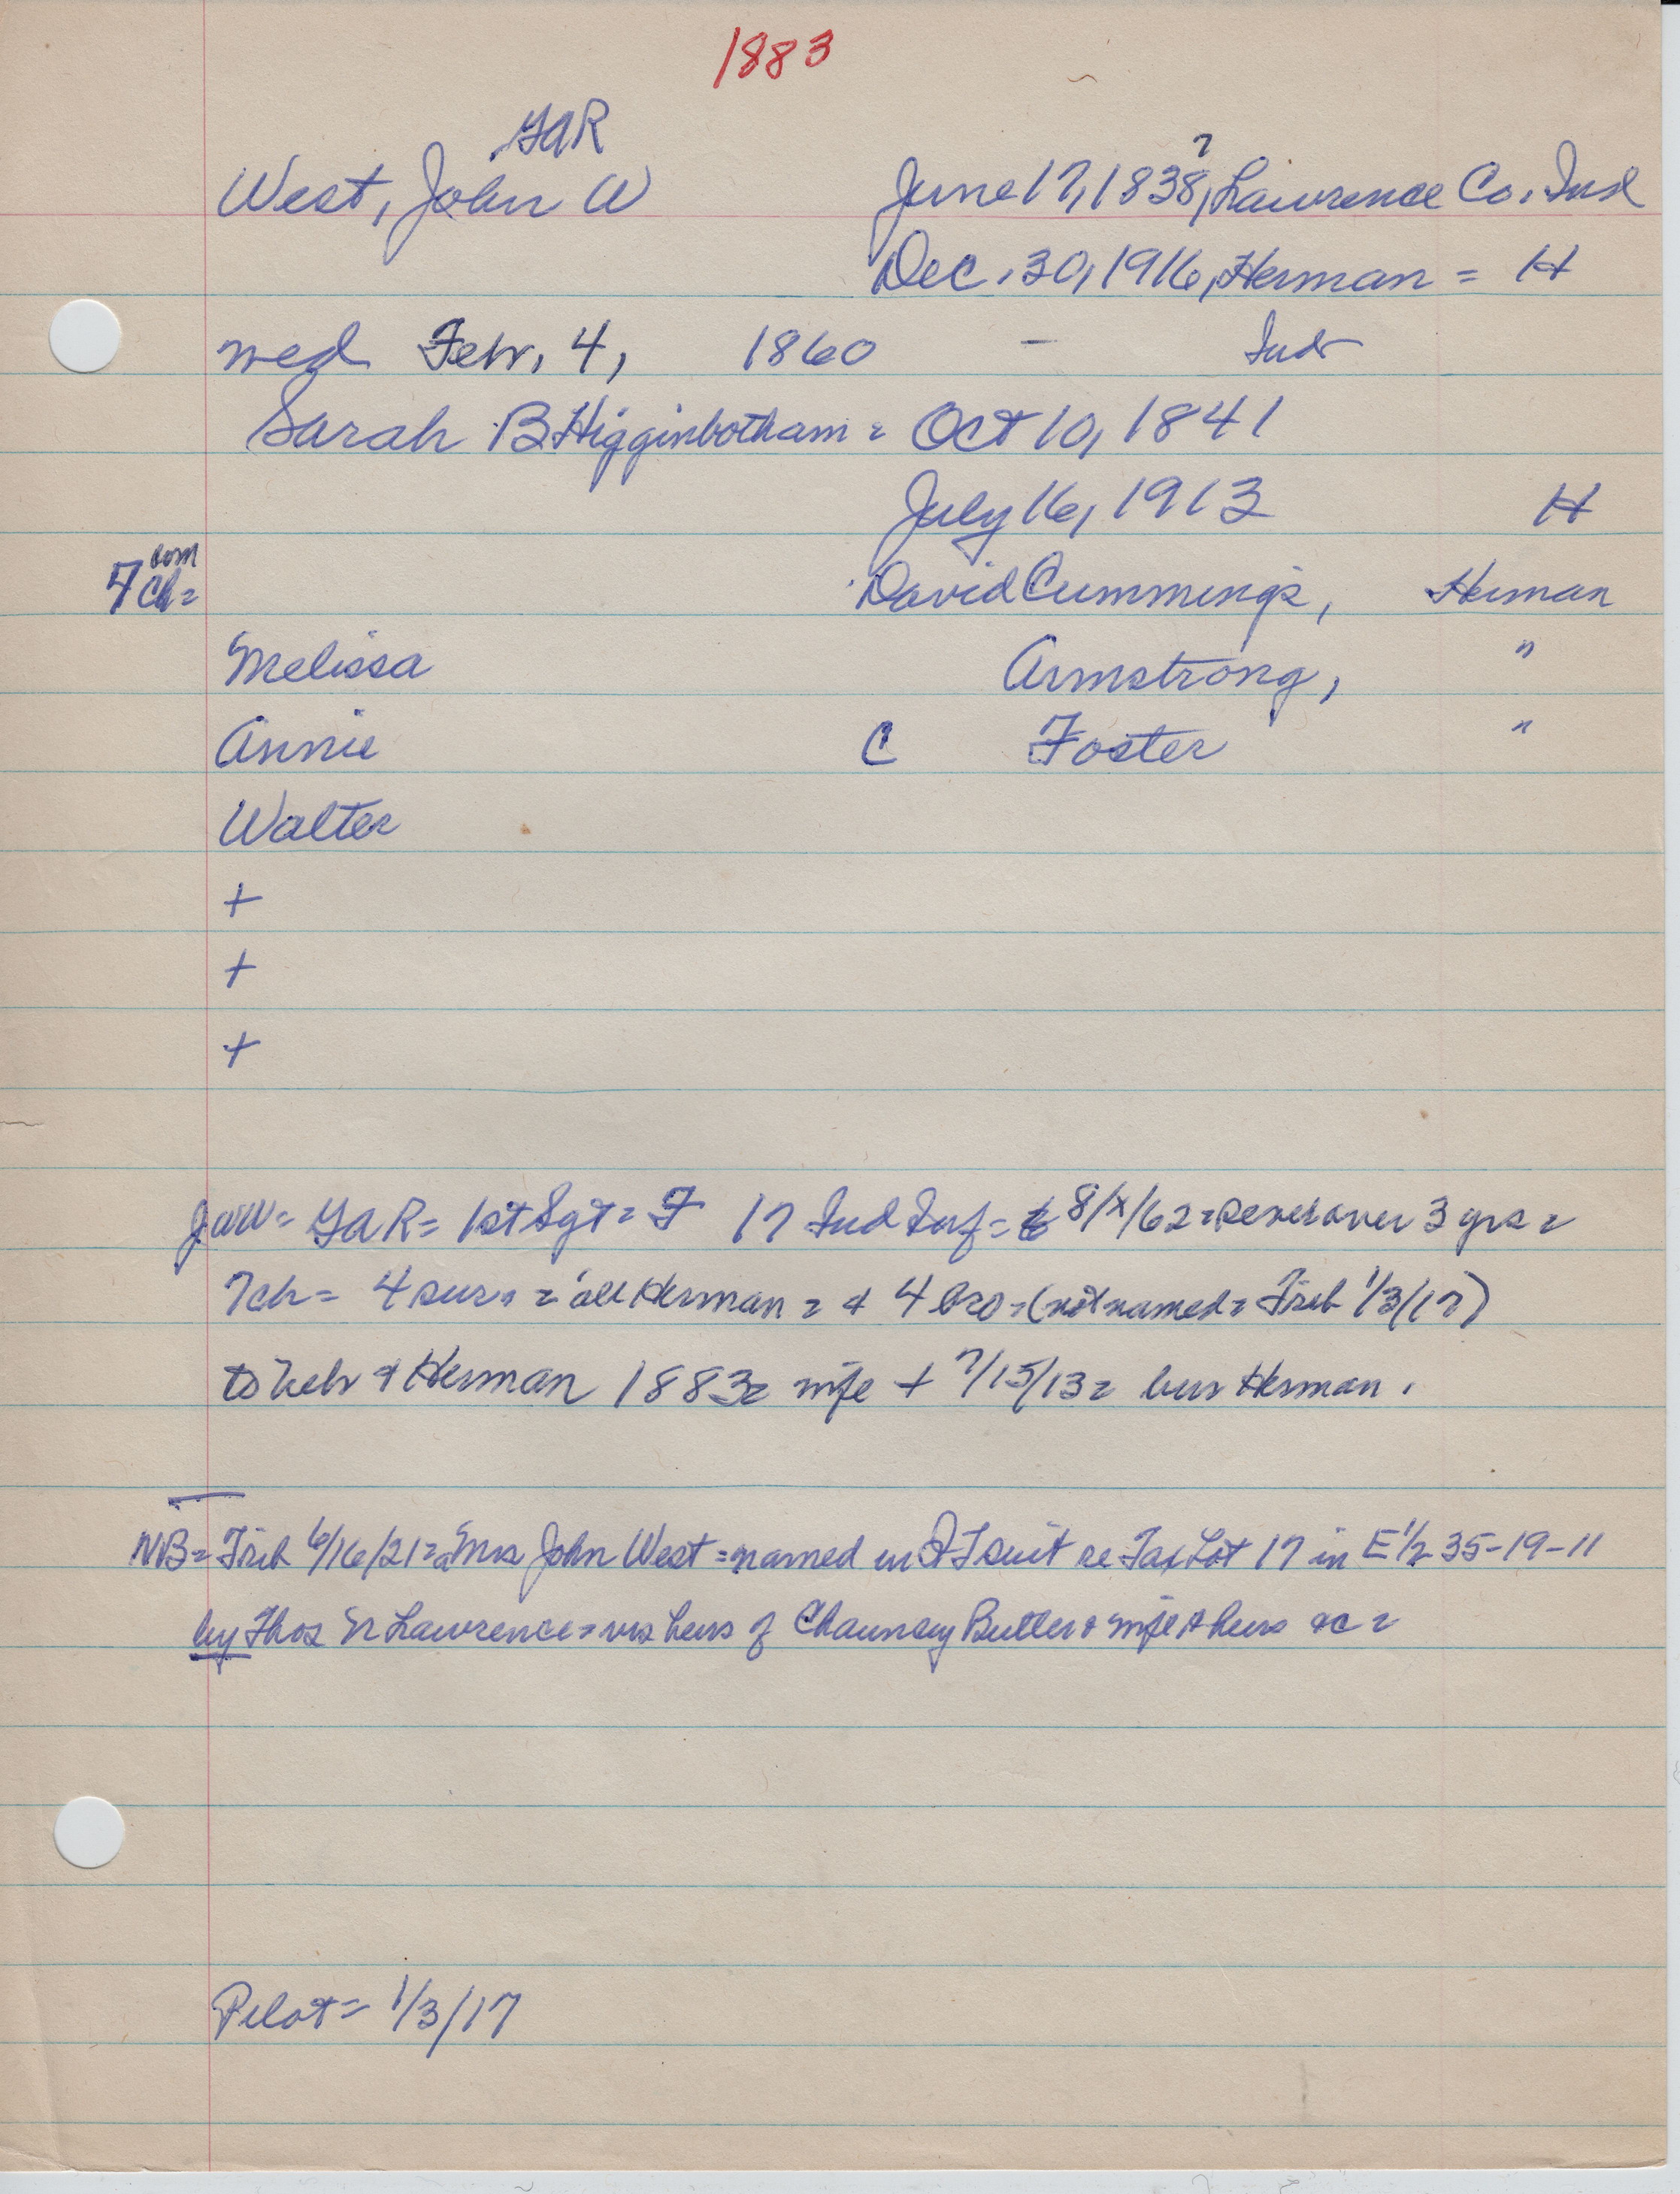 1883
GAR
West, John W June 17, 1838?, Lawrence Co, Ind
Dec. 30, 1916, Herman = H
med Febr. 4, 1860 - Ind
Sarah B Higginbotham = Oct 10, 1841
July 16, 1913 H
7 Ch = David Cummings, Herman
Melissa Armstrong, "
Annie C Foster "
Walter
+
+
+
GAR = 1st Sgt = F 17 Ind Inf = 8/x/62 = served over 3 yrs =
7ch = 4 surv. = all Herman = + 4 bro = (not named = Trib 1/3/17)
to Nebr + Herman 1883 = wife + 7/15/13 = bur Herman.
NB = Trib 6/16/21 = Mrs John West = named in QT suit re Tax Lot 17 in E 1/2 35-19-11
by Thos Lawrence = vs heirs of Chauncey Butler + wife + heirs &c =
Pilot = 1/3/17